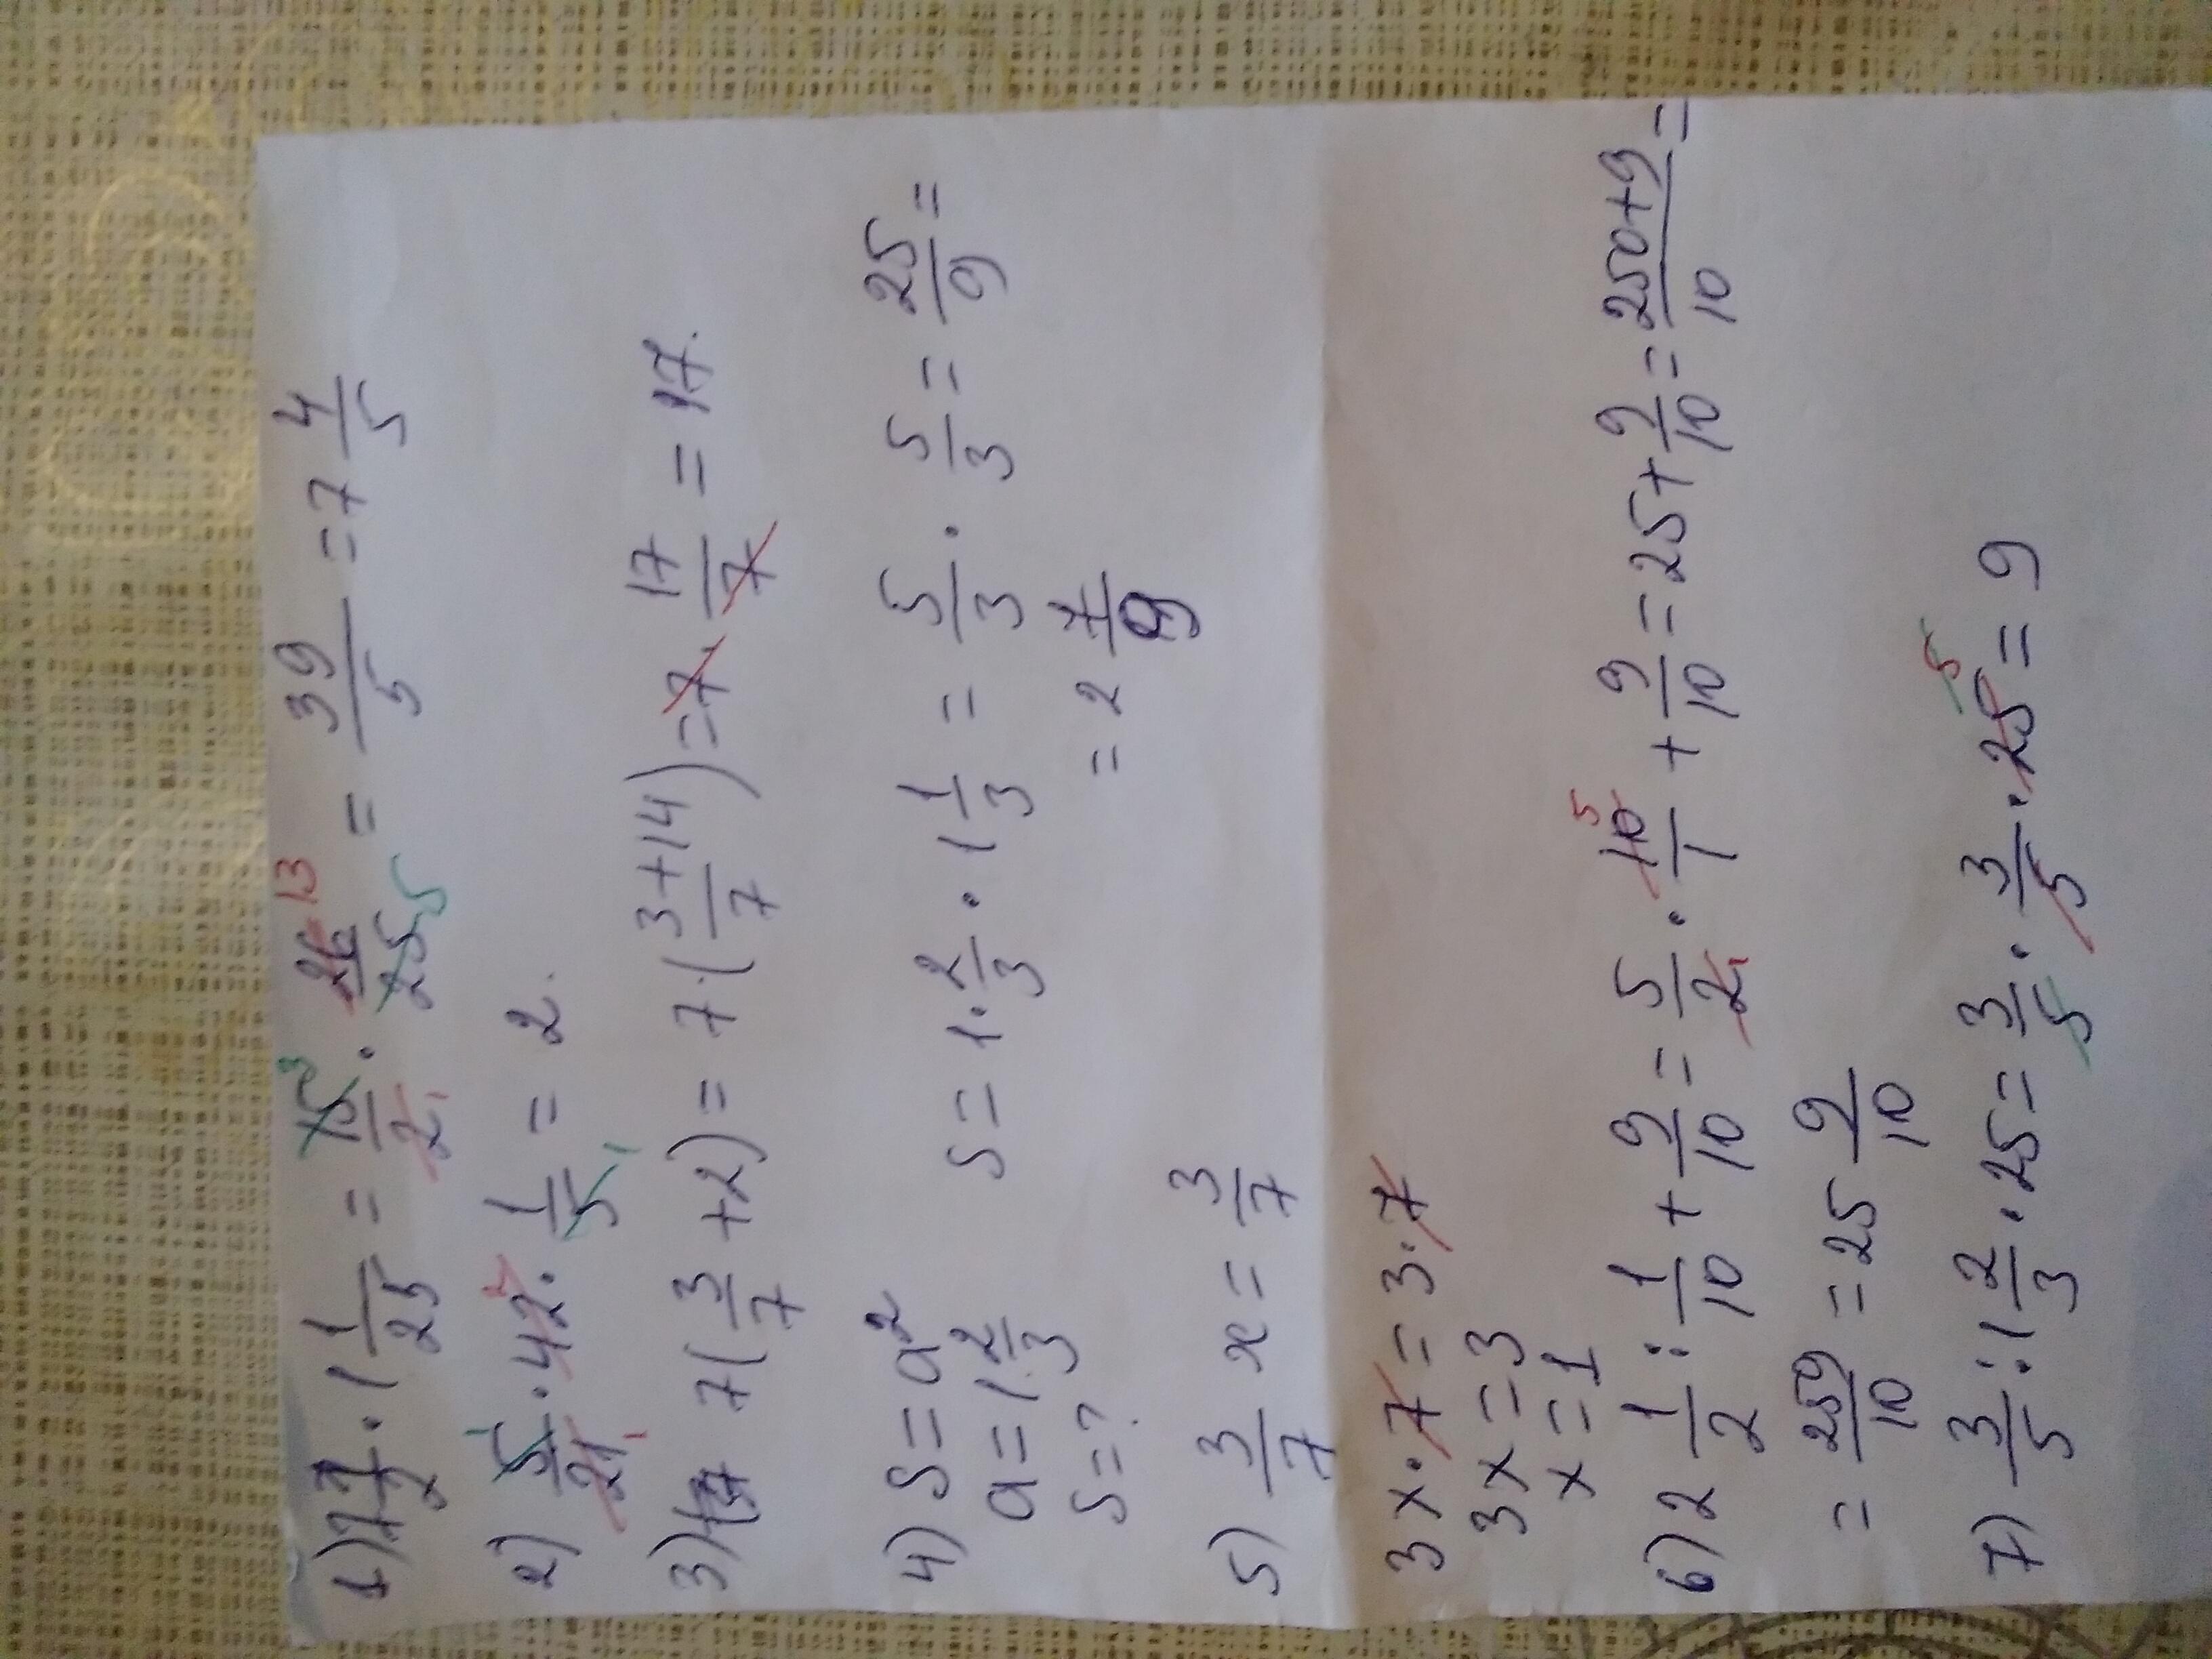 1) 7 1/2 · 1 1/25 = 15/2 · 26/25 = 39/5 = 7 4/5
3 13
1 5
2) 5/21 · 42 · 1/5 = 2.
1 2
1 1
3) 7(3/7 + 2) = 7·(3+14/7) = 7 · 17/7 = 17.
4) S = a²
a = 1 2/3
S = ?
S = 1·2/3 · 1 1/3 = 5/3 · 5/3 = 25/9 =
= 2 7/9
5) 3/7 x = 3/7
3x·7 = 3·7
3x = 3
x = 1
6) 2 1/2 : 1/10 + 9/10 = 5/2 · 10/1 + 9/10 = 25 + 9/10 = 250+9/10 =
5
1
= 259/10 = 25 9/10
7) 3/5 : 1 2/3 · 25 = 3/5 · 3/5 · 25 = 9
5